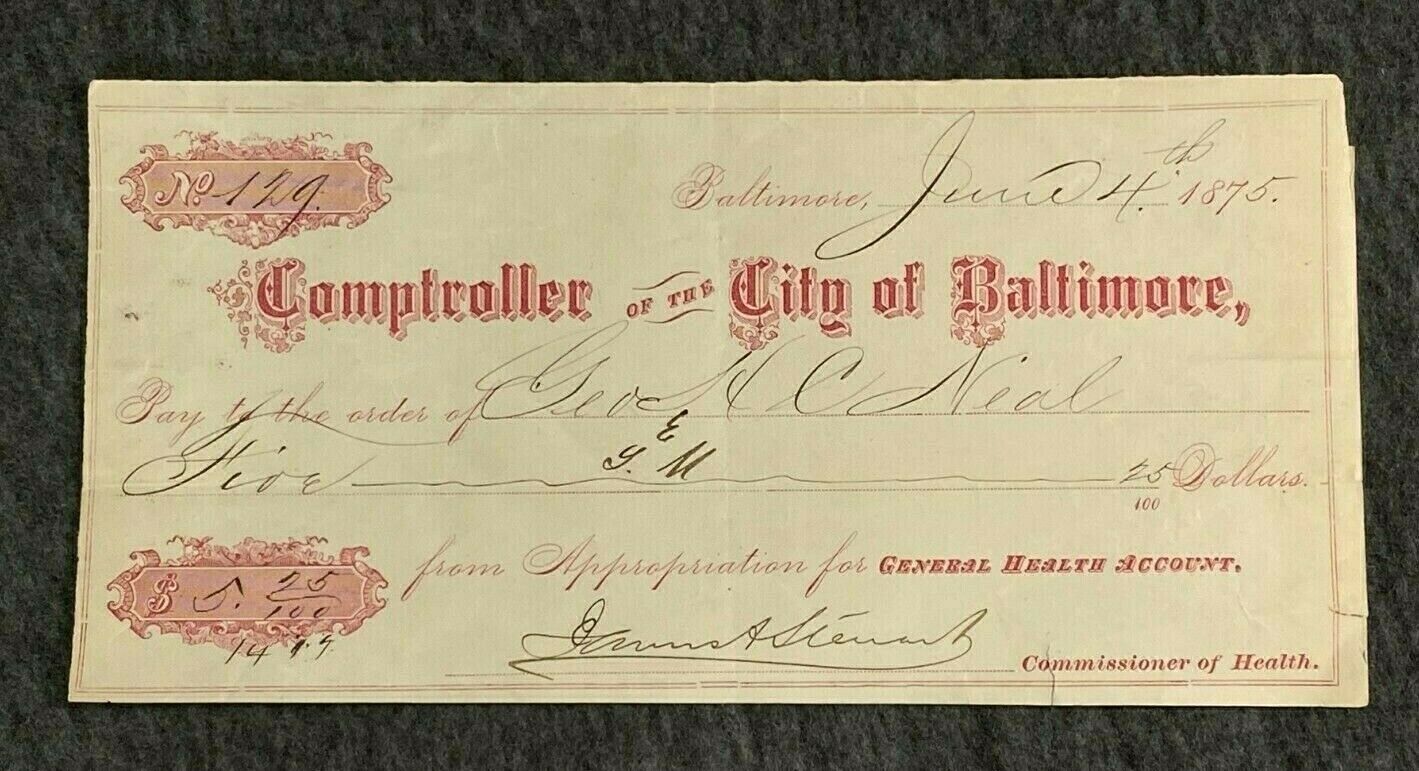 No. 129.
Baltimore, June 4.th 1875.
Comptroller OF THE City of Baltimore,
Pay to the order of Geo H C Neal
Five 25/100 Dollars.
G. E M
$ 5. 25/100 from Appropriation for GENERAL HEALTH ACCOUNT.
James A Steuart Commissioner of Health.